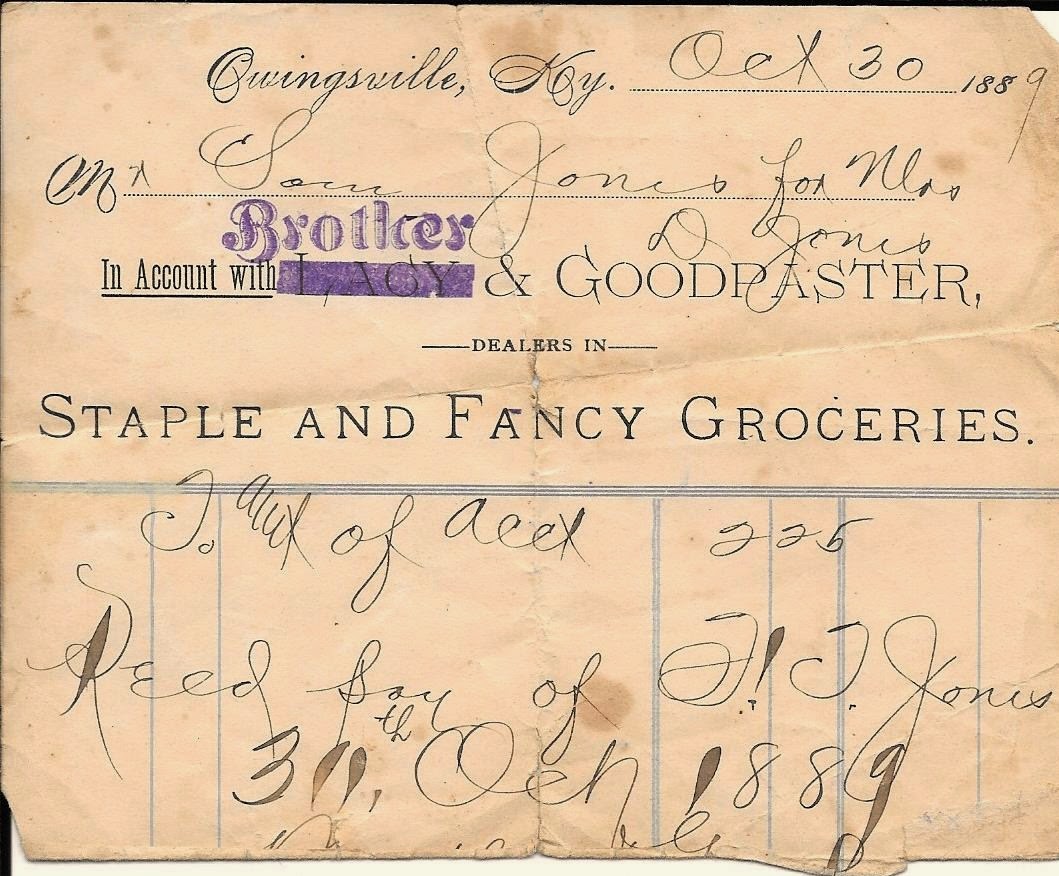 Owingsville, Ky. Oct 30 1889
Mr Sam Jones for Mrs
D Jones
Brother
In Account with LACY & GOODPASTER,
DEALERS IN
STAPLE AND FANCY GROCERIES.
To amt of acct 225
Recd pay of F. T. Jones
30th, Oct 1889